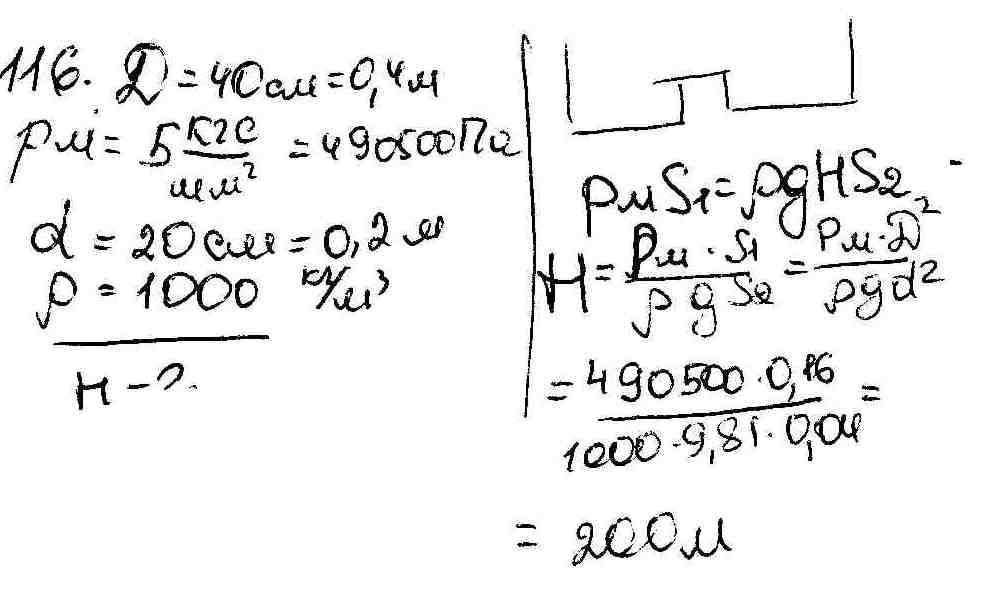 116. D = 40 см = 0,4 м
Pм = 5 кгс/мм² = 490500 Па
d = 20 см = 0,2 м
ρ = 1000 кг/м³
H - ?
PмS₁ = ρgHS₂
H = Pм · S₁ / ρgS₂ = Pм · D² / ρgd²
= 490500 · 0,16 / 1000 · 9,81 · 0,04 =
= 200 м